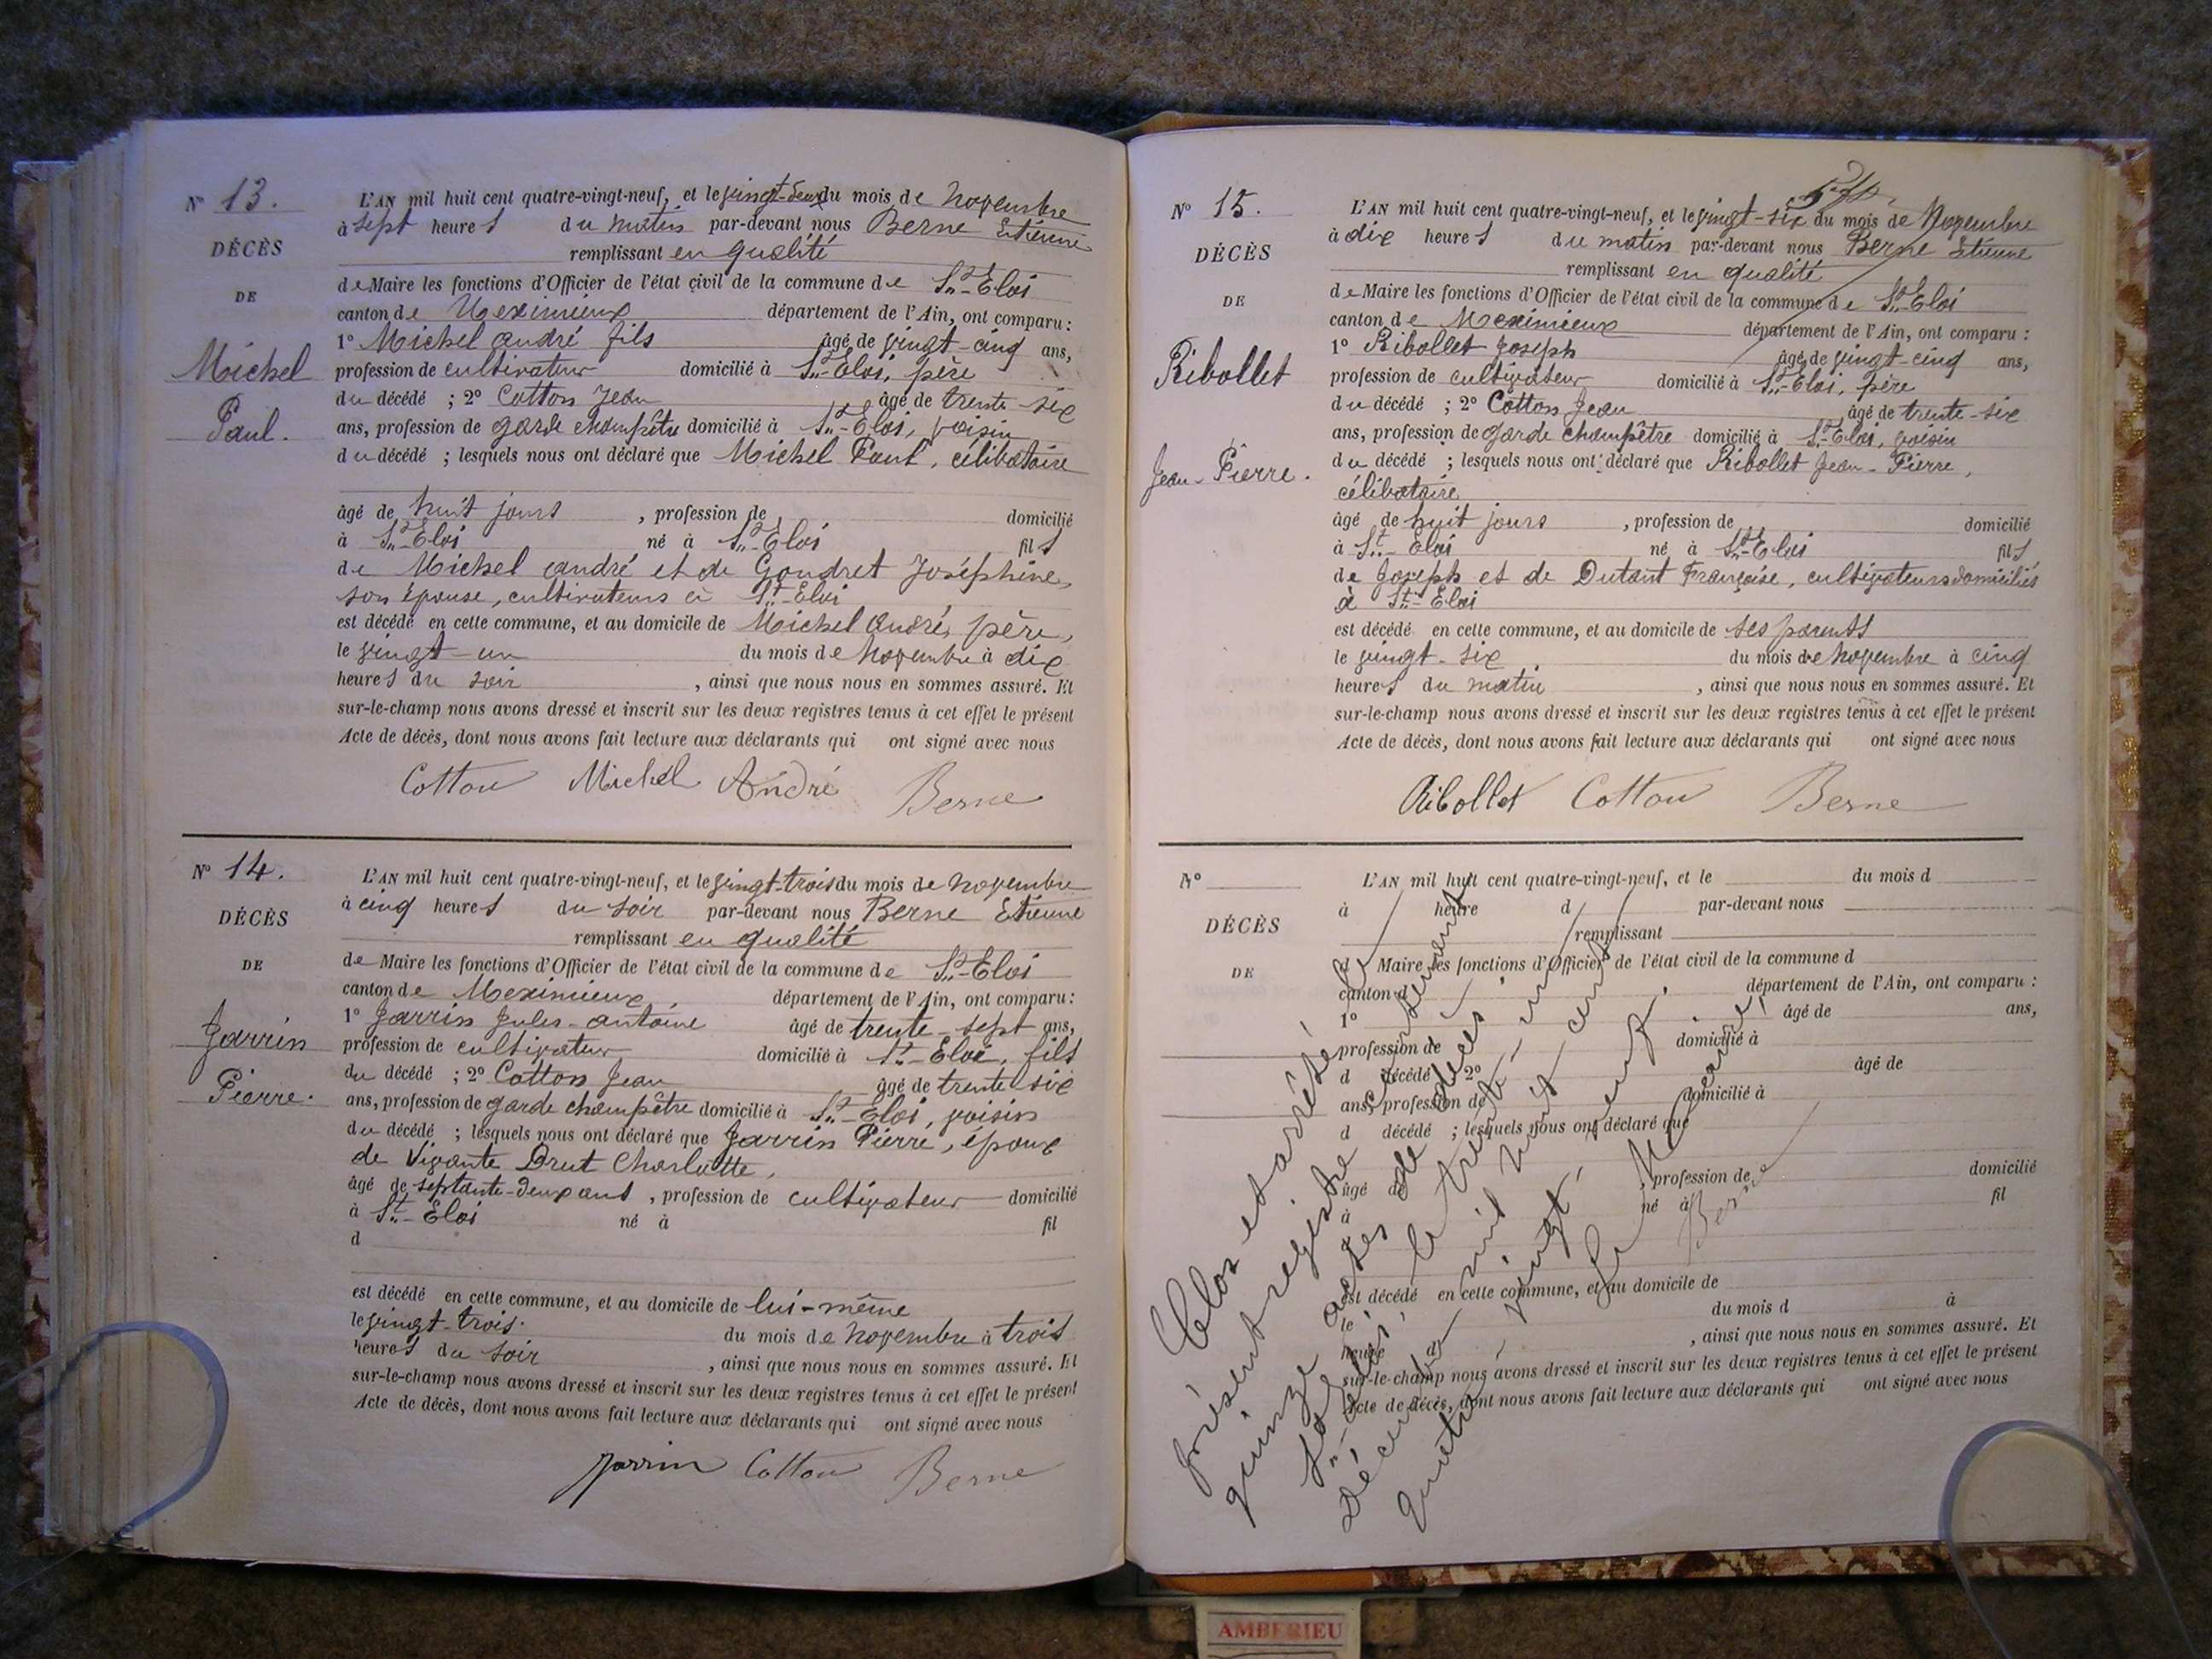 N° 13.
DÉCÈS
DE
Michel
Paul.
L'AN mil huit cent quatre-vingt-neuf, et le vingt-deux du mois de Novembre
à sept heures du matin par-devant nous Berne Etienne
remplissant en qualité
de Maire les fonctions d'Officier de l'état civil de la commune de St-Eloi
canton de Meximieux département de l'Ain, ont comparu :
1° Michel André fils âgé de vingt-cinq ans,
profession de cultivateur domicilié à St-Eloi, père
du décédé ; 2° Cotton Jean âgé de trente-six
ans, profession de garde champêtre domicilié à St-Eloi, voisin
du décédé ; lesquels nous ont déclaré que Michel Paul, célibataire
âgé de huit jours , profession de domicilié
à St-Eloi né à St-Eloi fils
de Michel André et de Gondret Joséphine,
son épouse, cultivateurs à St-Eloi
est décédé en cette commune, et au domicile de Michel André, père,
le vingt-un du mois de Novembre à dix
heures du soir , ainsi que nous nous en sommes assuré. Et
sur-le-champ nous avons dressé et inscrit sur les deux registres tenus à cet effet le présent
Acte de décès, dont nous avons fait lecture aux déclarants qui ont signé avec nous
Cotton Michel André Berne
N° 14.
DÉCÈS
DE
Jarrin
Pierre.
L'AN mil huit cent quatre-vingt-neuf, et le vingt-trois du mois de Novembre
à cinq heures du soir par-devant nous Berne Etienne
remplissant en qualité
de Maire les fonctions d'Officier de l'état civil de la commune de St-Eloi
canton de Meximieux, département de l'Ain, ont comparu :
1° Jarrin Jules-Antoine âgé de trente-sept ans,
profession de cultivateur domicilié à St-Eloi, fils
du décédé ; 2° Cotton Jean âgé de trente-six
ans, profession de garde champêtre domicilié à St-Eloi, voisin
du décédé ; lesquels nous ont déclaré que Jarrin Pierre, époux
de Vivante Drut Charlotte,
âgé de septante-deux ans , profession de cultivateur domicilié
à St-Eloi né à fil
d
est décédé en cette commune, et au domicile de lui-même
le vingt-trois. du mois de Novembre à trois
heures du soir , ainsi que nous nous en sommes assuré. Et
sur-le-champ nous avons dressé et inscrit sur les deux registres tenus à cet effet le présent
Acte de décès, dont nous avons fait lecture aux déclarants qui ont signé avec nous
Jarrin Cotton Berne
N° 15.
DÉCÈS
DE
Ribollet
Jean-Pierre.
L'AN mil huit cent quatre-vingt-neuf, et le vingt-six du mois de Novembre
à dix heures du matin par-devant nous Berne Etienne
remplissant en qualité
de Maire les fonctions d'Officier de l'état civil de la commune de St-Eloi
canton de Meximieux département de l'Ain, ont comparu :
1° Ribollet Joseph âgé de vingt-cinq ans,
profession de cultivateur domicilié à St-Eloi, père
du décédé ; 2° Cotton Jean âgé de trente-six
ans, profession de garde champêtre domicilié à St-Eloi, voisin
du décédé ; lesquels nous ont déclaré que Ribollet Jean-Pierre,
célibataire
âgé de huit jours , profession de domicilié
à St-Eloi né à St-Eloi fils
de Joseph et de Dutant Françoise, cultivateurs domiciliés
à St-Eloi
est décédé en cette commune, et au domicile de ses parents
le vingt-six du mois de Novembre à cinq
heures du matin , ainsi que nous nous en sommes assuré. Et
sur-le-champ nous avons dressé et inscrit sur les deux registres tenus à cet effet le présent
Acte de décès, dont nous avons fait lecture aux déclarants qui ont signé avec nous
Ribollet Cotton Berne
N°
DÉCÈS
DE
L'AN mil huit cent quatre-vingt-neuf, et le du mois d
à heure d par-devant nous
remplissant
d Maire les fonctions d'Officier de l'état civil de la commune d
canton d département de l'Ain, ont comparu :
1° âgé de ans,
profession de domicilié à
d décédé 2° âgé de
ans, profession de domicilié à
d décédé ; lesquels nous ont déclaré que
âgé de profession de domicilié
à né à fil
est décédé en cette commune, et au domicile de
le du mois d à
heure d , ainsi que nous nous en sommes assuré. Et
sur-le-champ nous avons dressé et inscrit sur les deux registres tenus à cet effet le présent
Acte de décès, dont nous avons fait lecture aux déclarants qui ont signé avec nous
Clos et arrêté le
présent registre contenant
quinze actes de décès
St-Eloi, le trente-un
décembre mil huit cent
quatre-vingt-neuf.
Le Maire,
Berne
AMBERIEU